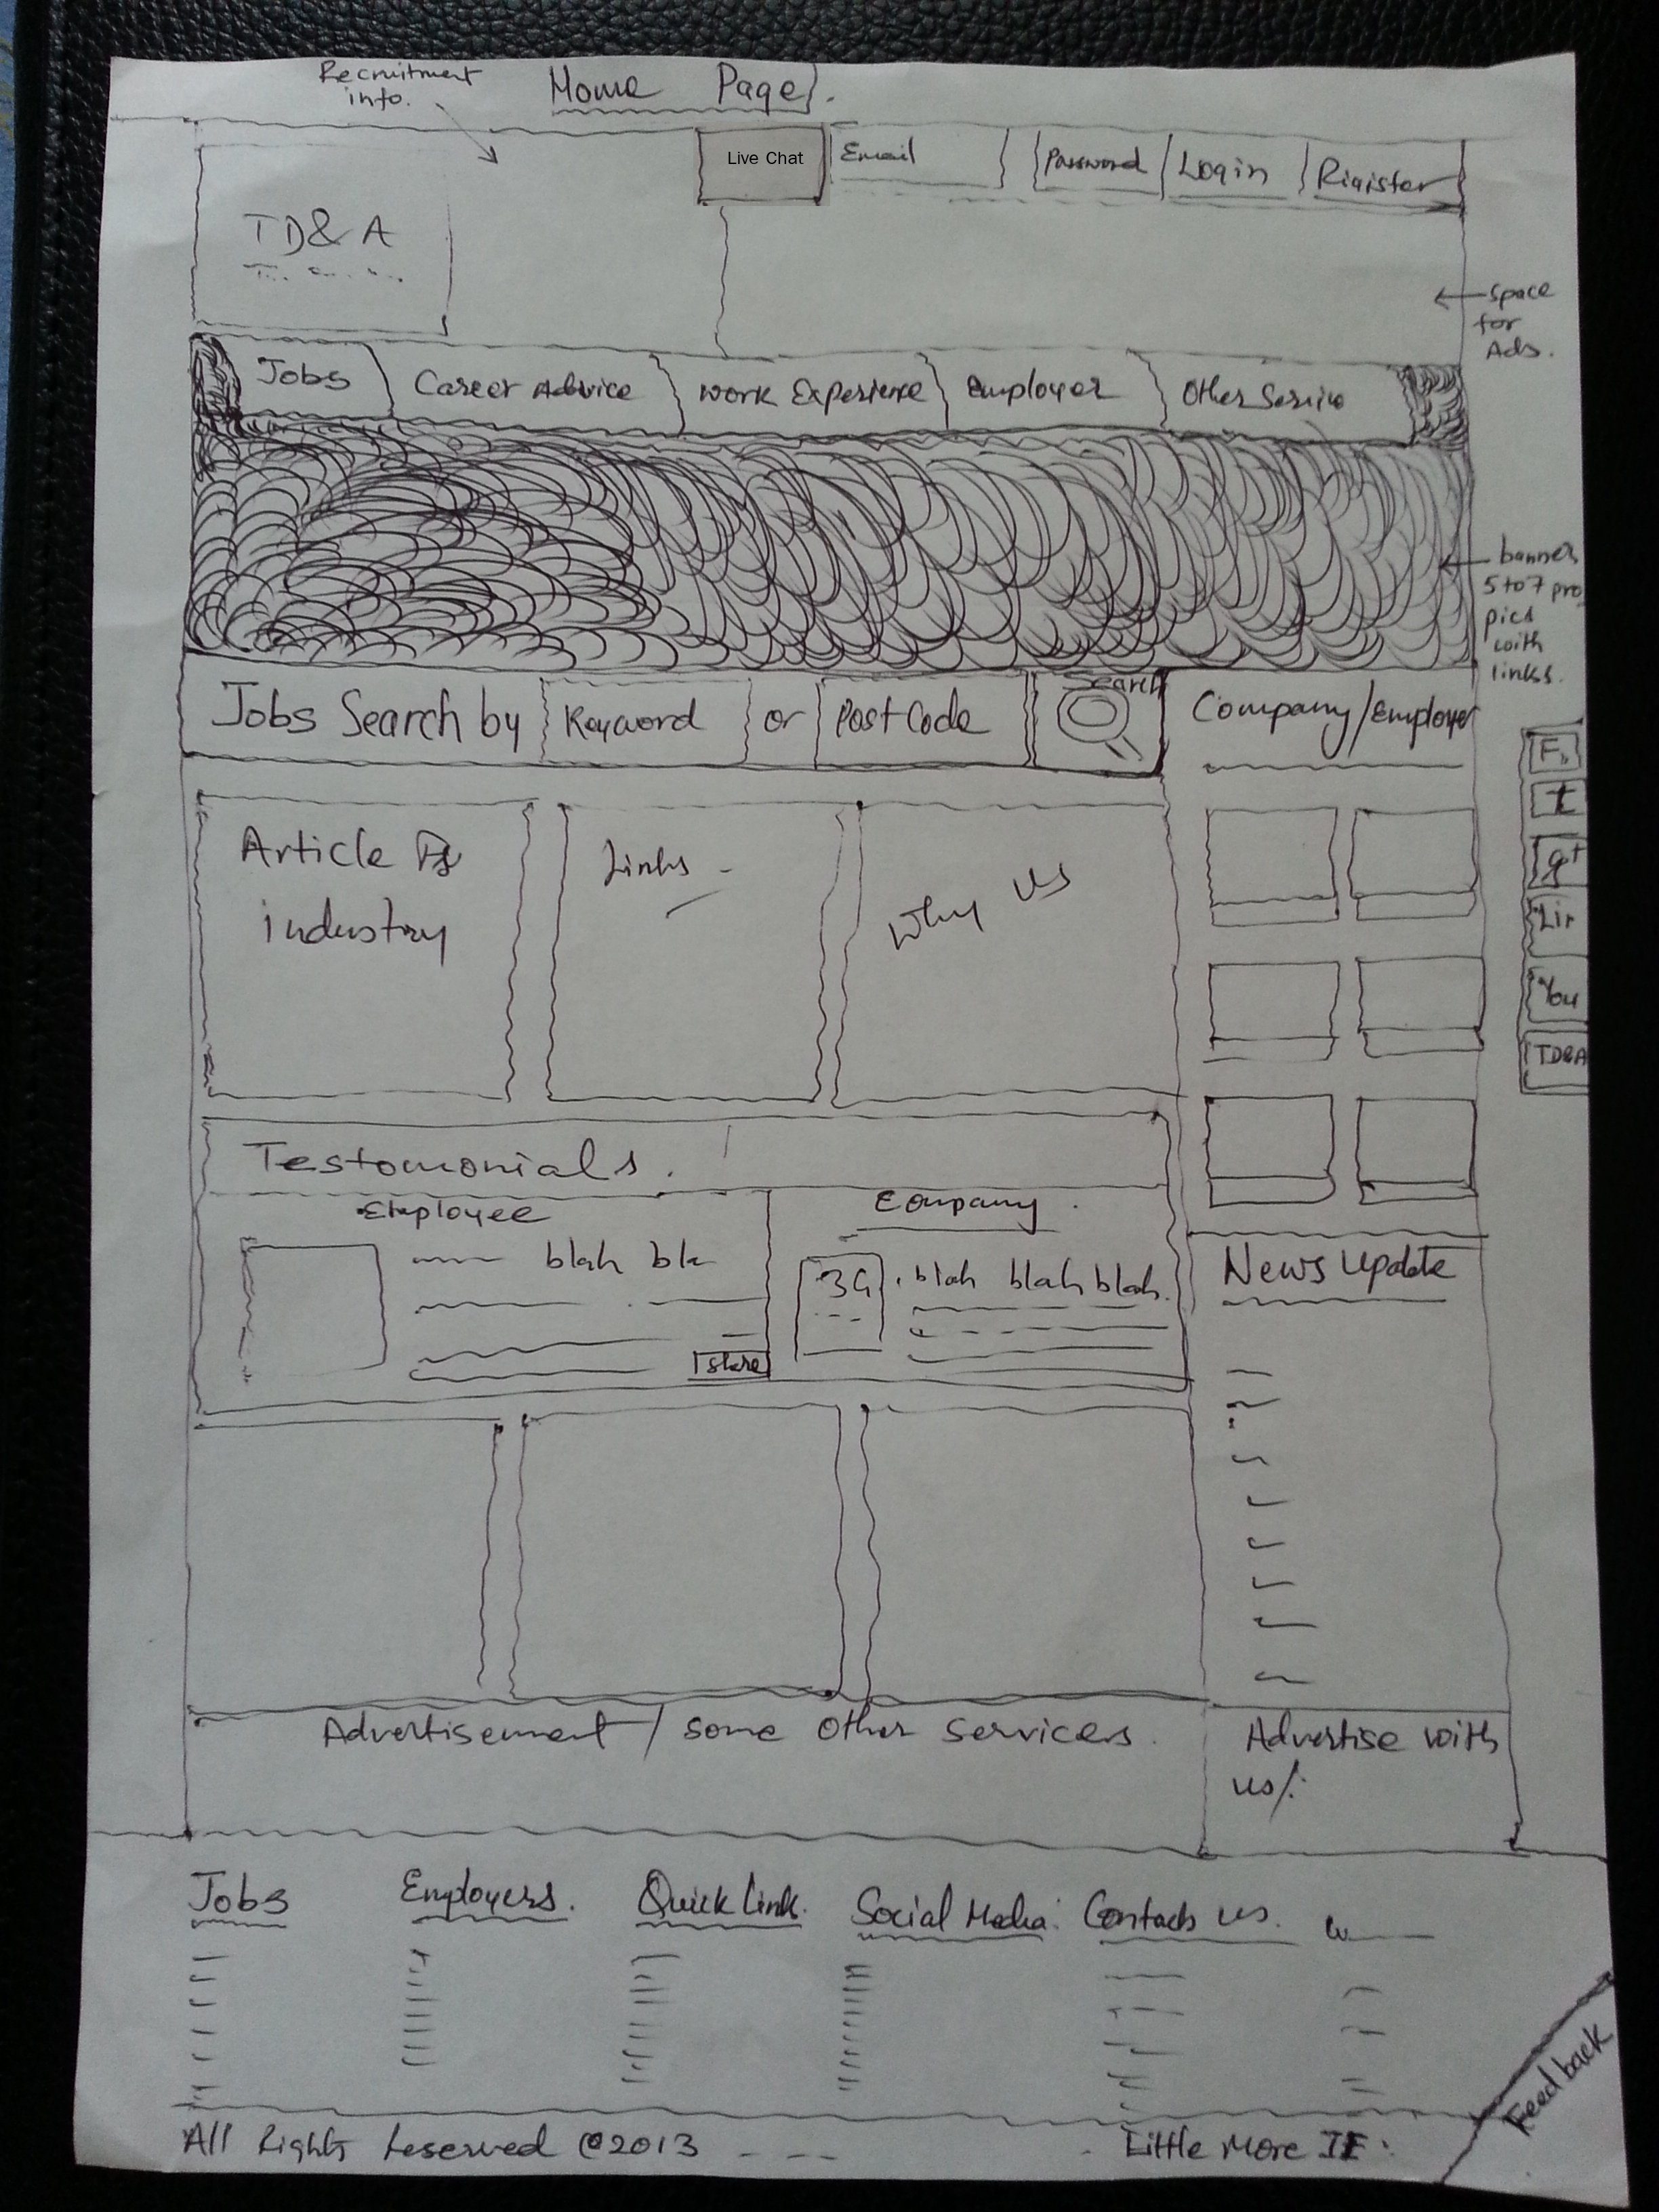 Recruitment
info.
Home Page.
Live Chat
Email
Password
Login
Rigister
TD& A
Space
for
Ads.
Jobs
Career Advice
Work Experience
Employer
Other Service
banner
5 to 7 pro
pics
with
links.
Jobs Search by
Keyword
or
Post Code
Search
Company/Employer
F
t
g+
Lin
You
TD&A
Article
industry
Links -
Why Us
Testomonials.
Employee
blah bla
Share
Company
3G
blah blah blah.
News Update
Advertisement / Some Other Services.
Advertise with
us/:
Jobs
Employers.
Quick Link.
Social Media:
Contacts us.
All Rights Reserved @2013 - - -
Little More IF :
Feedback